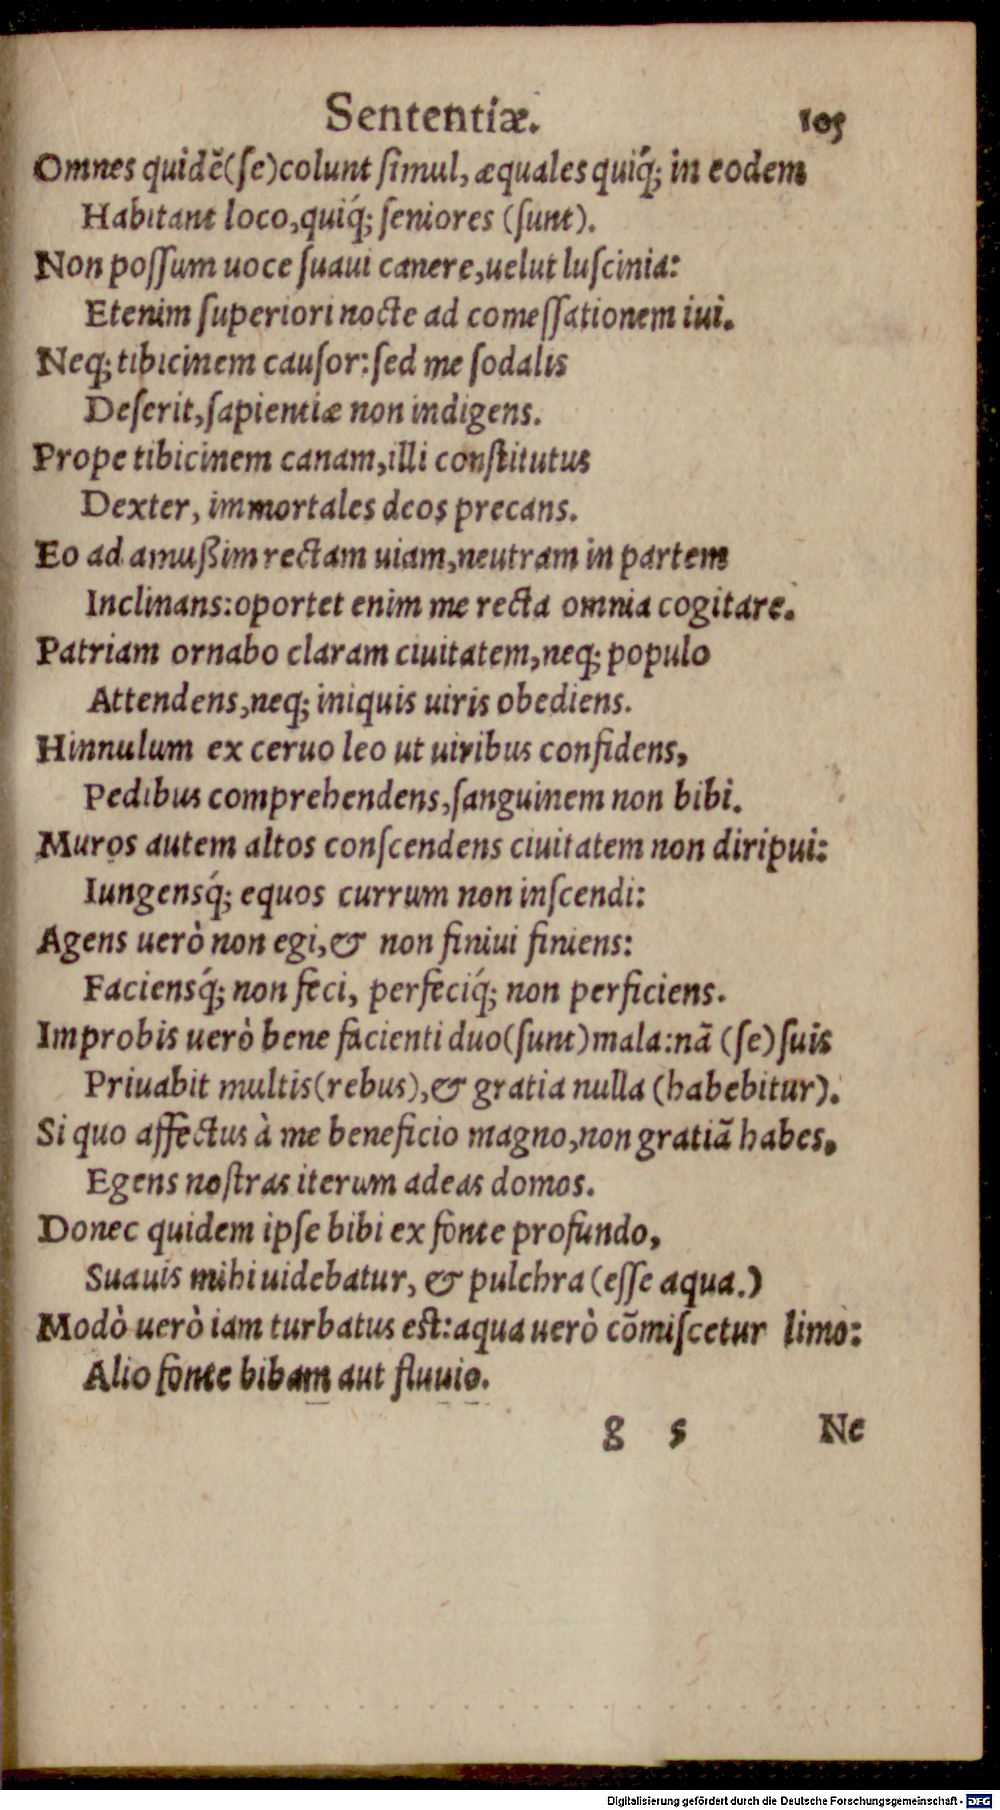 Sententiæ. 105
Omnes quidẽ(ſe)colunt ſimul, æquales quiq́; in eodem
Habitant loco,quiq́; ſeniores (ſunt).
Non poſſum uoce ſuaui canere,uelut luſcinia:
Etenim ſuperiori nocte ad comeſſationem iui.
Neq; tibicinem cauſor:ſed me ſodalis
Deſerit,ſapientiæ non indigens.
Prope tibicinem canam,illi conſtitutus
Dexter, immortales deos precans.
Eo ad amußim rectam uiam,neutram in partem
Inclinans:oportet enim me recta omnia cogitare.
Patriam ornabo claram ciuitatem,neq; populo
Attendens,neq; iniquis uiris obediens.
Hinnulum ex ceruo leo ut uiribus confidens,
Pedibus comprehendens,ſanguinem non bibi.
Muros autem altos conſcendens ciuitatem non diripui:
Iungensq́; equos currum non inſcendi:
Agens uerò non egi,& non finiui finiens:
Faciensq́; non feci, perfeciq́; non perficiens.
Improbis uerò bene facienti duo(ſunt)mala:nã (ſe)ſuis
Priuabit multis(rebus),& gratia nulla (habebitur).
Si quo affectus à me beneficio magno,non gratiã habes,
Egens noſtras iterum adeas domos.
Donec quidem ipſe bibi ex fonte profundo,
Suauis mihi uidebatur, & pulchra (eſſe aqua.)
Modò uerò iam turbatus eſt:aqua uerò cõmiſcetur limo:
Alio fonte bibam aut fluuio.
g 5 Ne
Digitalisierung gefördert durch die Deutsche Forschungsgemeinschaft - DFG